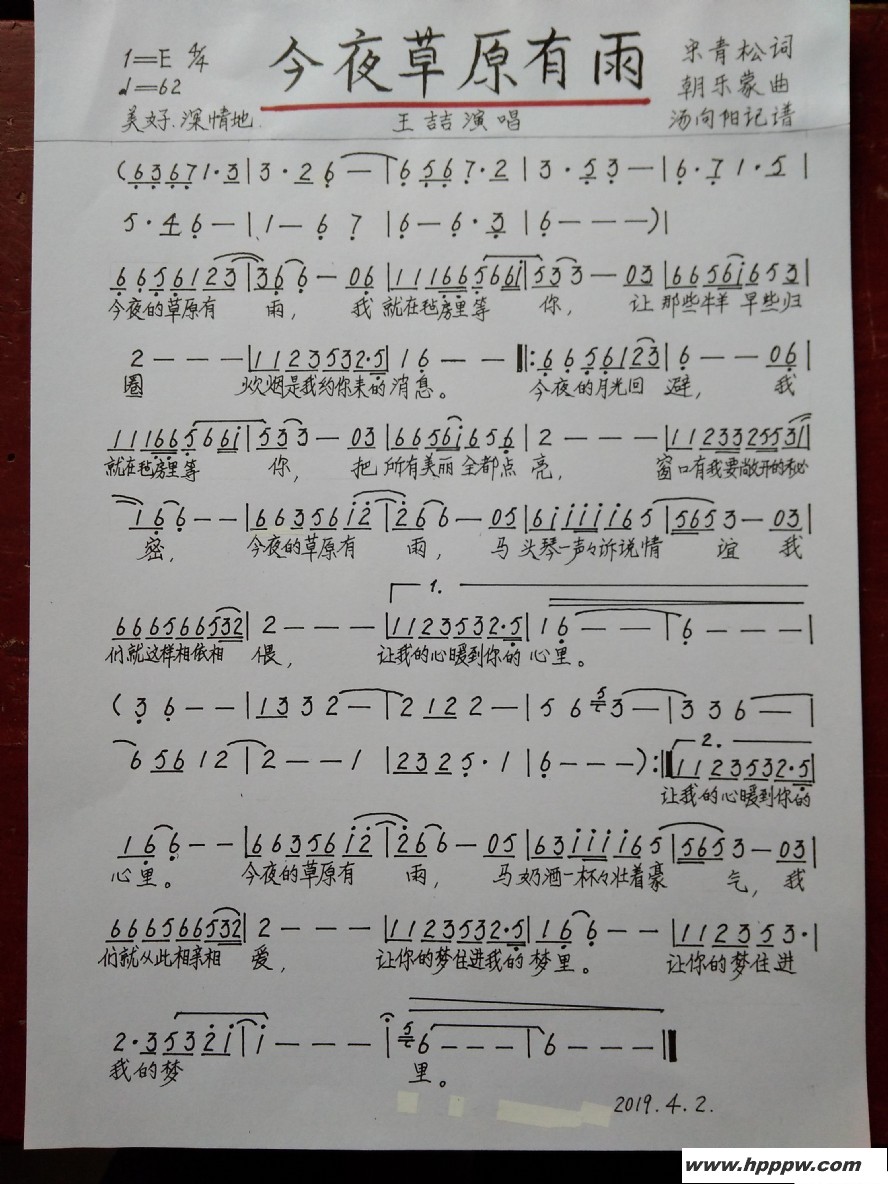 今夜草原有雨
1=E 4/4
♩=62
美好.深情地.
宋青松词
朝乐蒙曲
王喆演唱
汤向阳记谱
(6 3 6 7 1·3 | 3·2 6 — | 6 5 6 7·2 | 3·5 3 — | 6·7 1·5 |
5·4 6 — | 1 — 6 7 | 6 — 6·3 | 6 — — —) |
6 6 5 6 1 2 3 | 3 6 6 — 0 6 | 1 1 1 6 6 5 6 6 i | 5 3 3 — 0 3 | 6 6 5 6 i 6 5 3 |
今夜的草原有 雨， 我 就在毡房里等 你， 让 那些牛羊 早些归
2 — — — | 1 1 2 3 5 3 2·5 | 1 6 — — ‖: 6 6 5 6 1 2 3 | 6 — — 0 6 |
圈 炊烟是我约你来的 消息。 今夜的月光回 避， 我
1 1 1 6 6 5 6 6 i | 5 3 3 — 0 3 | 6 6 5 6 i 6 5 6 | 2 — — — | 1 1 2 3 3 2 5 5 3 1 |
就在毡房里等 你， 把 所有美丽 全都点 亮， 窗口有我要敞开的秘
1 6 6 — — | 6 6 3 5 6 i 2 | 2 6 6 — 0 5 | 6 i i i i i 6 5 | 5 6 5 3 — 0 3 |
密， 今夜的草原有 雨， 马 头琴一声々诉说情 谊 我
1.
6 6 6 5 6 6 5 3 2 | 2 — — — | 1 1 2 3 5 3 2·5 | 1 6 — — | 6 — — — |
们就这样相依相 偎， 让我的心暖到你的 心里。
( 3 6 — — | 1 3 3 2 — | 2 1 2 2 — | 5 6 5 3 — | 3 3 6 — |
6 5 6 1 2 | 2 — — 1 | 2 3 2 5·1 | 6 — — —) :‖ 2. 1 1 2 3 5 3 2·5 |
让我的心暖到你的
1 6 6 — — | 6 6 3 5 6 i 2 | 2 6 6 — 0 5 | 6 3 i i i i 6 5 | 5 6 5 3 — 0 3 |
心里。 今夜的草原有 雨， 马 奶酒一杯々壮着豪 气， 我
6 6 6 5 6 6 5 3 2 | 2 — — — | 1 1 2 3 5 3 2·5 | 1 6 6 — — | 1 1 2 3 5 3· |
们就从此相亲相 爱， 让你的梦住进我的 梦里。 让你的梦住进
2·3 5 3 2 i | i — — — | i 5 6 — — — | 6 — — — ‖
我的梦 里。
2019.4.2.
www.hpppw.com